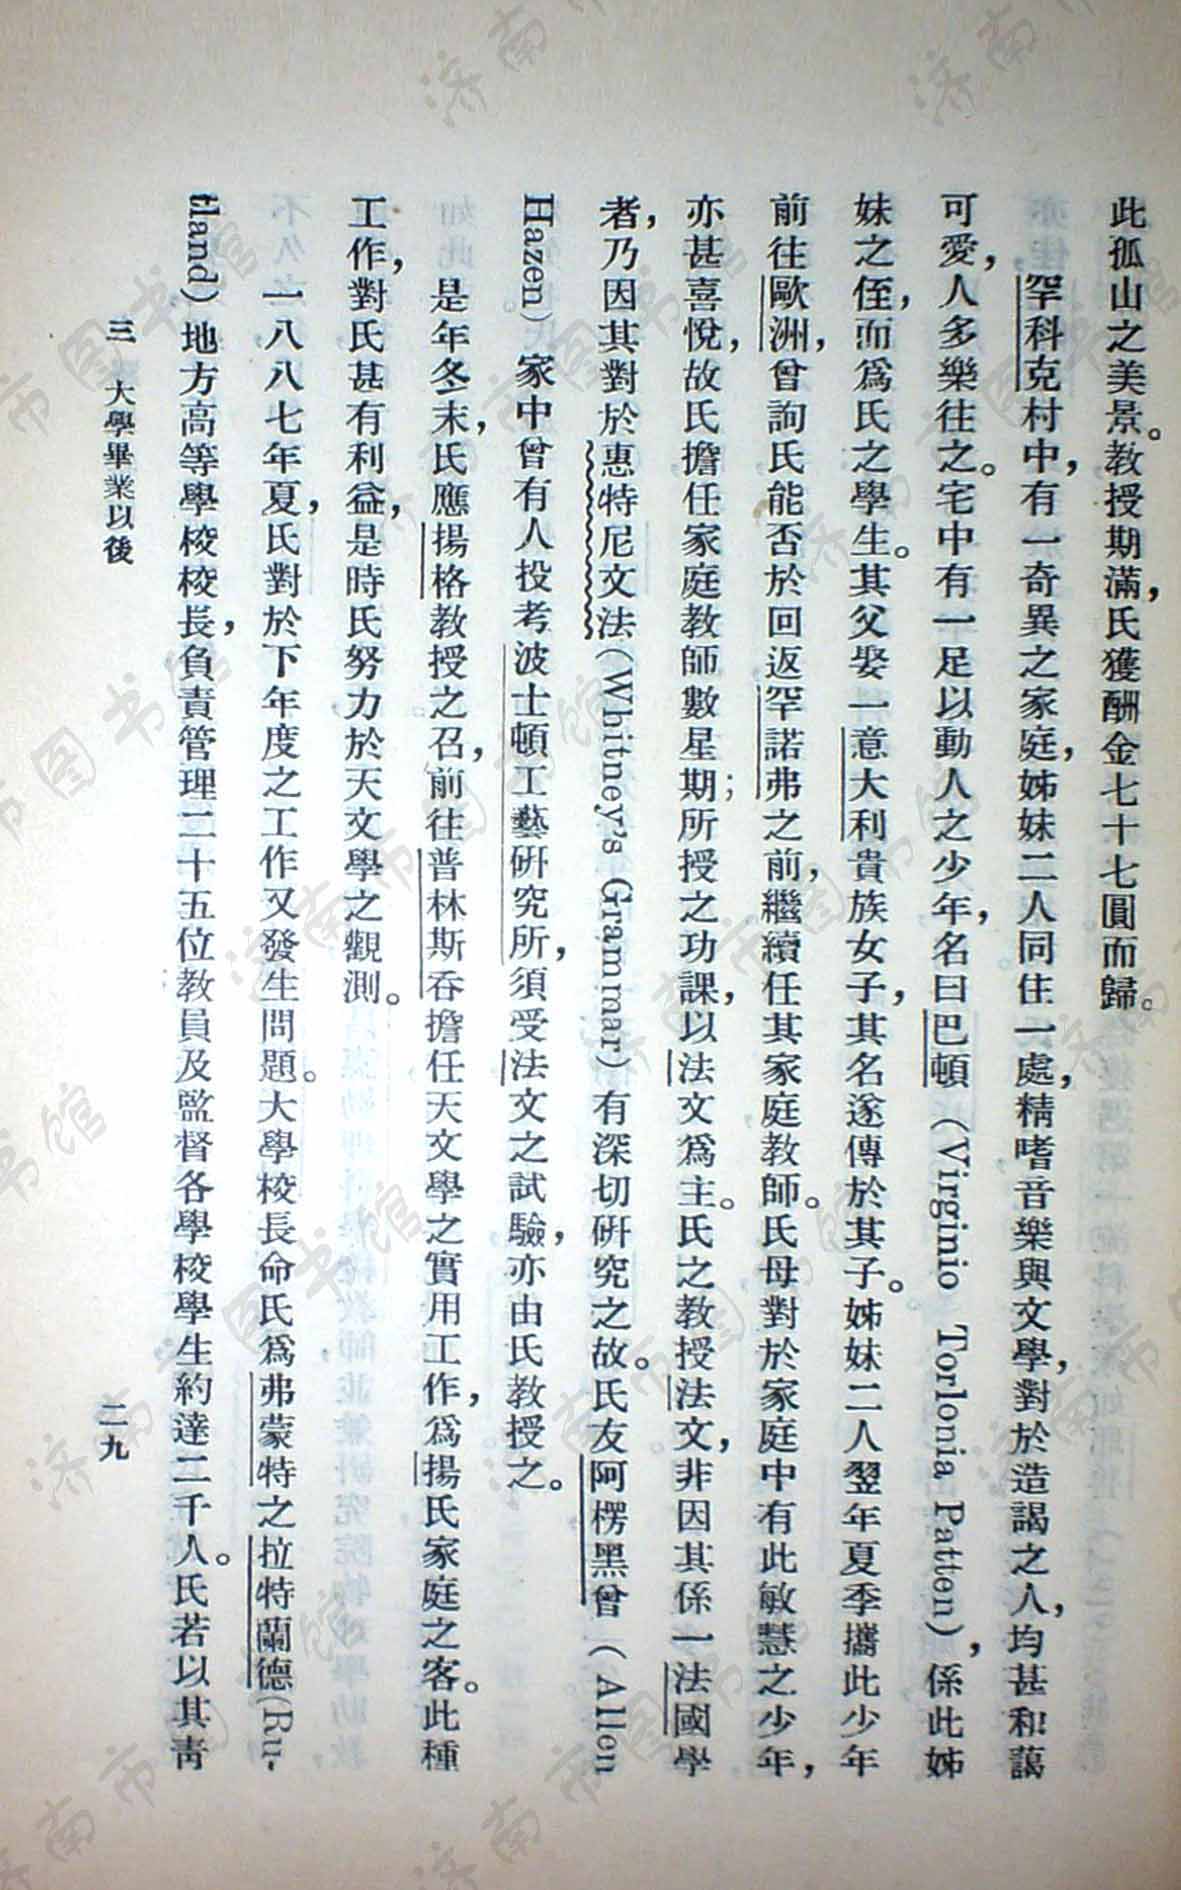 此孤山之美景。教授期滿，氏獲酬金七十七圓而歸。
罕科克村中，有一奇異之家庭，姊妹二人同住一處，精嗜音樂與文學，對於造謁之人，均甚和藹
可愛，人多樂往之。宅中有一足以動人之少年，名曰巴頓（Virginio Torlonia Patten），係此姊
妹之侄，而爲氏之學生。其父娶一意大利貴族女子，其名遂傳於其子。姊妹二人翌年夏季攜此少年
前往歐洲，曾詢氏能否於回返罕諾弗之前，繼續任其家庭教師。氏母對於家庭中有此敏慧之少年，
亦甚喜悅，故氏擔任家庭教師數星期；所授之功課，以法文爲主。氏之教授法文，非因其係一法國學
者，乃因其對於惠特尼文法（Whitney's Grammar）有深切研究之故。氏友阿楞黑曾（Allen
Hazen）家中曾有人投考波士頓工藝研究所，須受法文之試驗，亦由氏教授之。
是年冬末，氏應揚格教授之召，前往普林斯吞擔任天文學之實用工作，爲揚氏家庭之客。此種
工作，對氏甚有利益，是時氏努力於天文學之觀測。
一八八七年夏，氏對於下年度之工作又發生問題。大學校長命氏爲弗蒙特之拉特蘭德（Ru-
tland）地方高等學校校長，負責管理二十五位教員及監督各學校學生約達二千人。氏若以其靑
三 大學畢業以後
二九
济南市图书馆